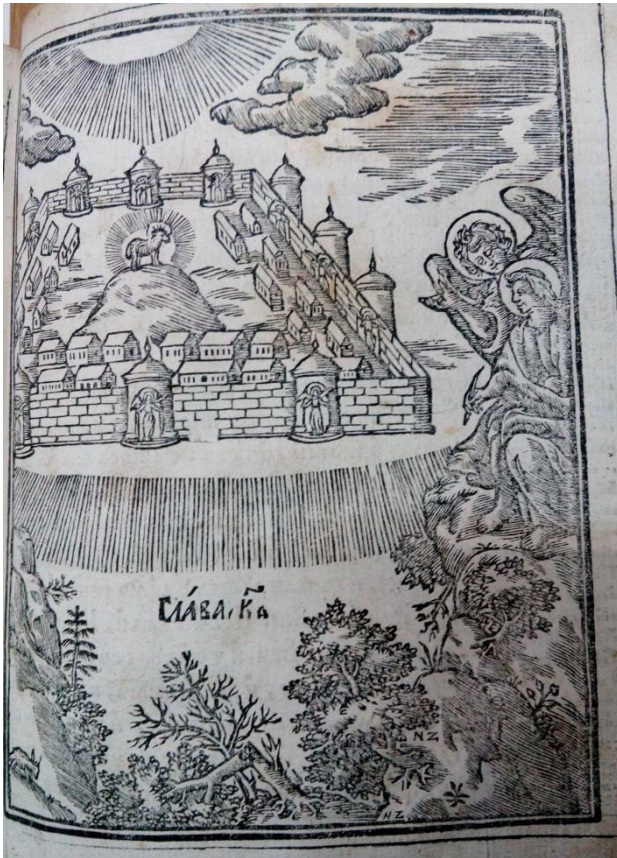 ГЛА́ВА, К҃а
NZ
NZ